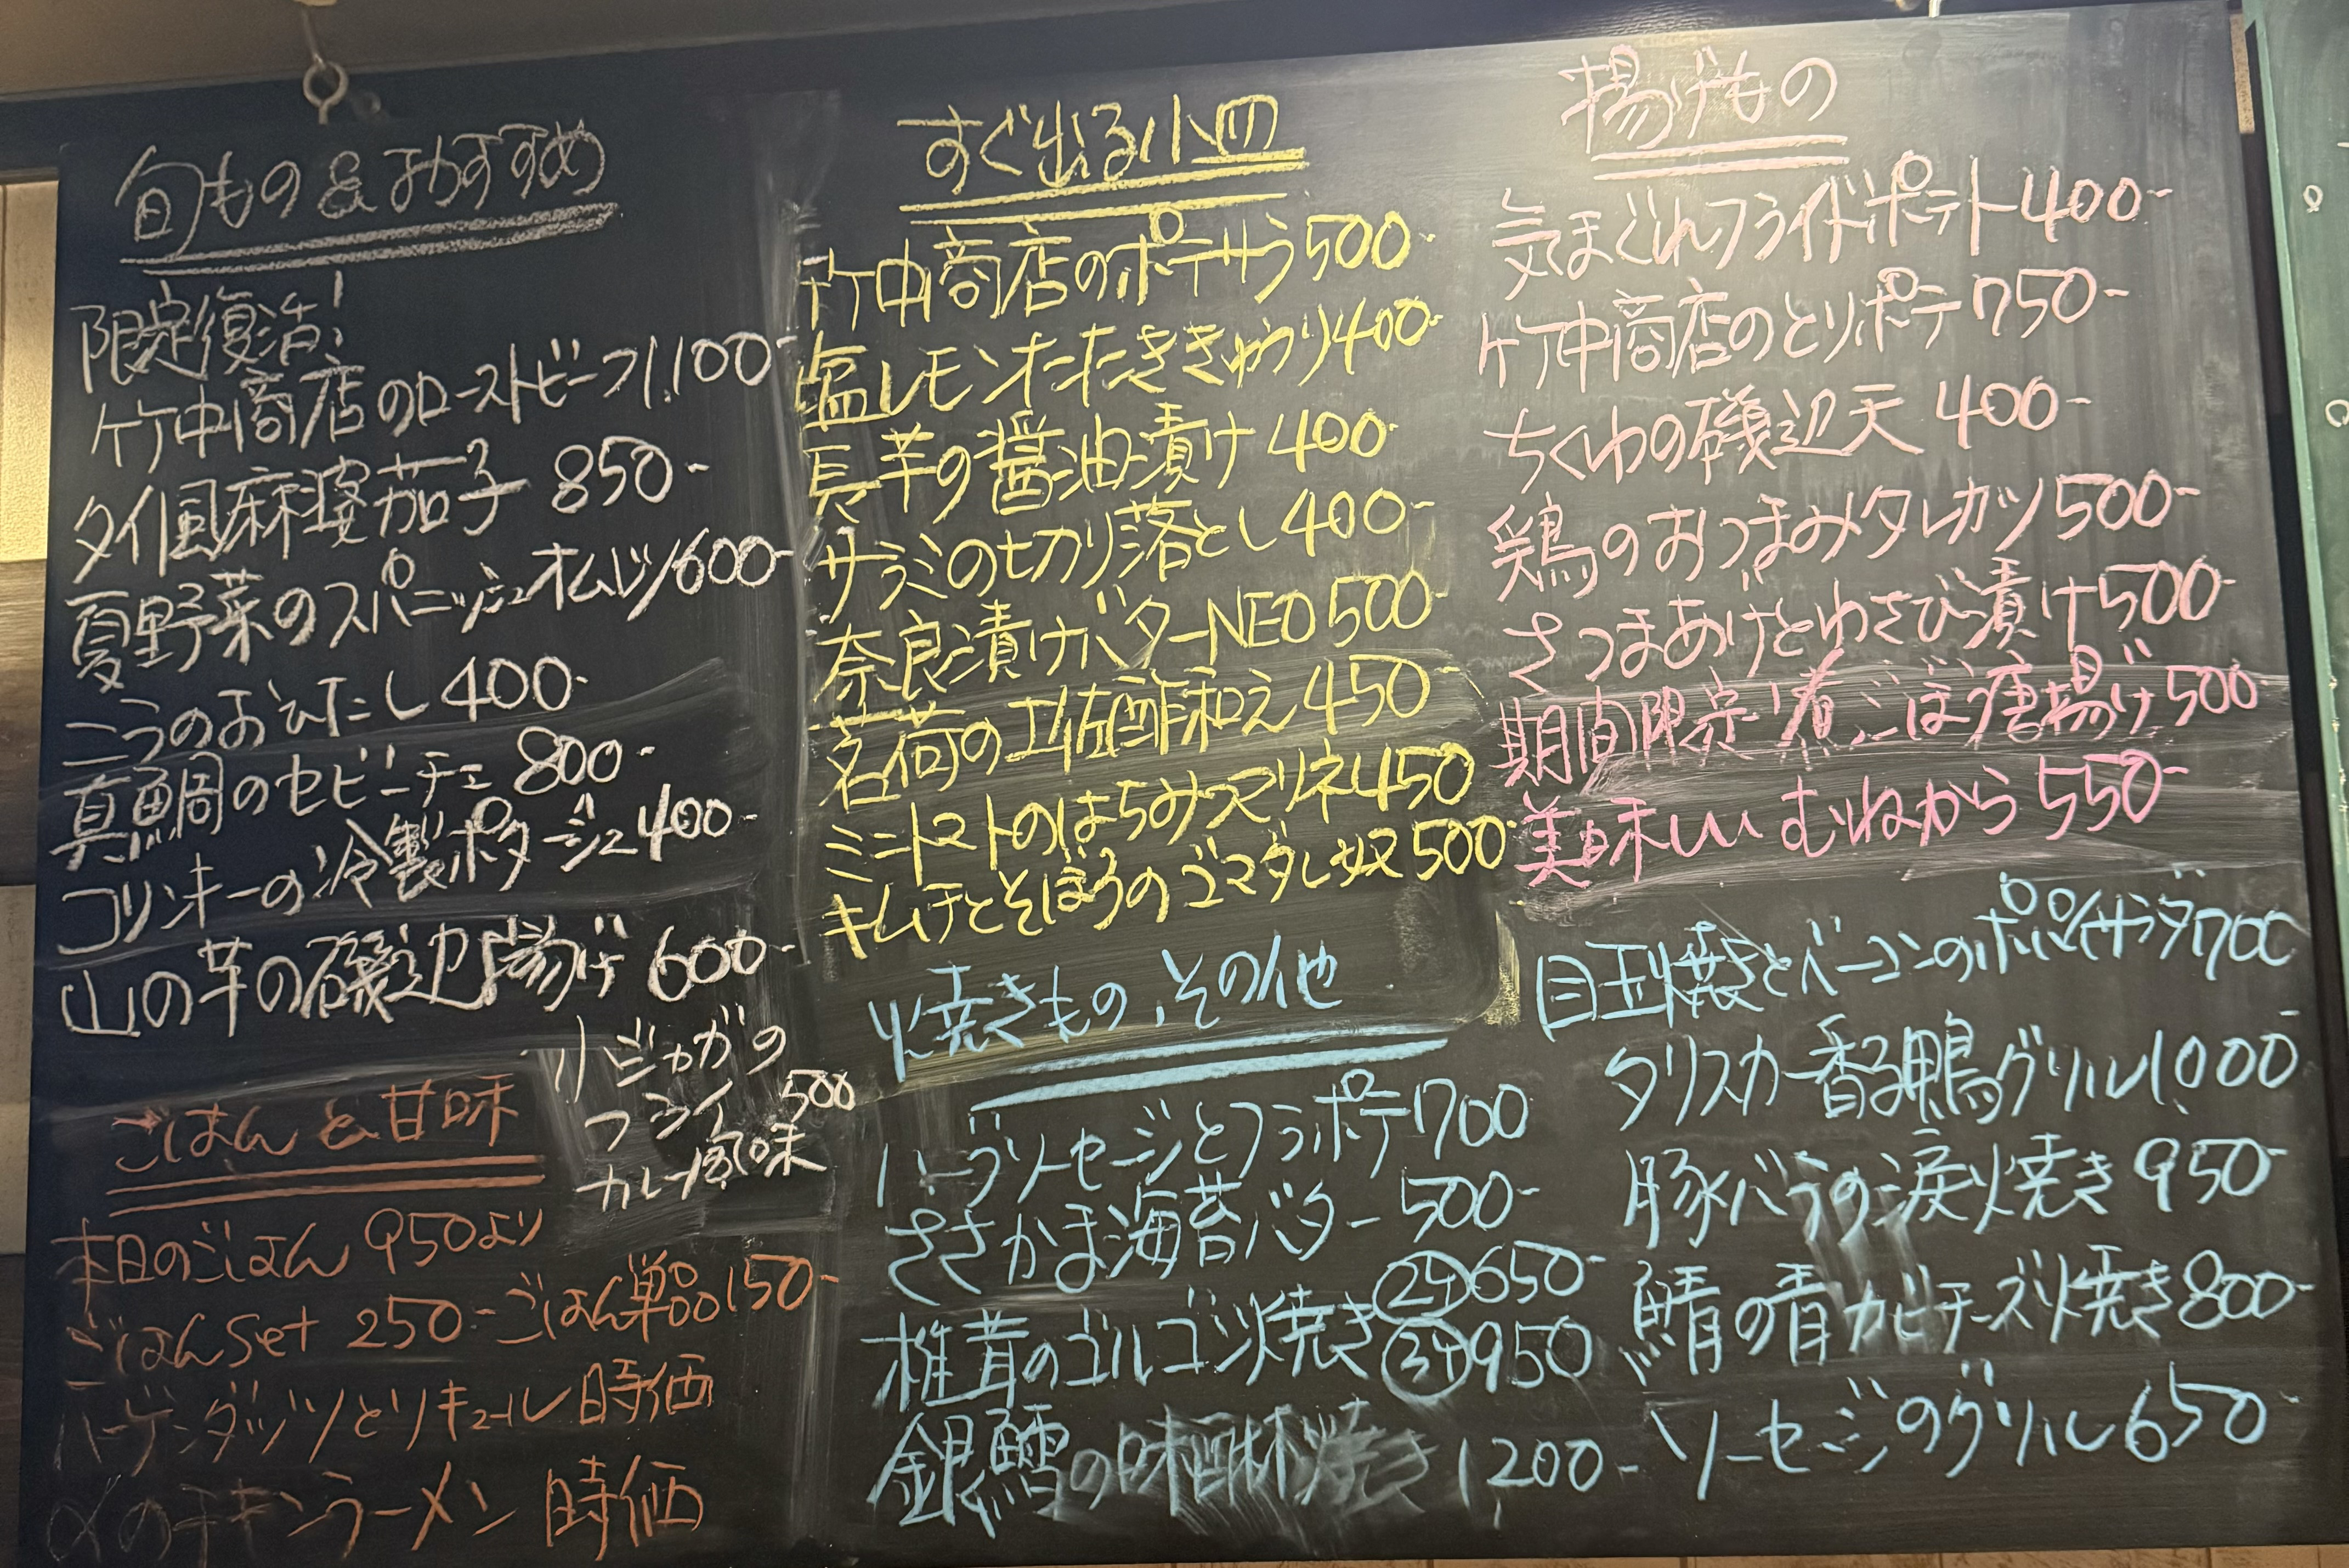 旬もの&おすすめ
限定復活!
竹中商店のローストビーフ1,100-
タイ風麻婆茄子 850-
夏野菜のスパニッシュオムレツ600-
ニラのおひたし400-
真鯛のセビーチェ 800-
コリンキーの冷製ポタージュ400-
山の芋の磯辺揚げ 600-
小ジャガの
フライ 500
カレー風味
ごはんと甘味
本日のごはん 950より
ごはんset 250-ごはん単品150-
ハーゲンダッツとリキュール 時価
〆のチキンラーメン 時価
すぐ出る小皿
竹中商店のポテサラ500-
塩レモンたたききゅうり400-
長芋の醤油漬け 400-
サラミの切り落とし400-
奈良漬けバターNEO500-
茗荷の土佐酢和え450-
ミニトマトのはちみつマリネ450
キムチとそぼろのゴマダレ奴500-
焼きもの、その他
ハーブソーセージとフラポテ700
ささかま海苔バター 500-
椎茸のゴルゴン焼き②ケ650-
③ケ950
銀鱈の味醂焼き 1200-
揚げもの
気まぐれフライドポテト400-
竹中商店のとりポテ750-
ちくわの磯辺天 400-
鶏のおつまみタレカツ500-
さつまあげとわさび漬け500-
期間限定 煮ごぼう唐揚げ500-
美味しい むねから 550-
目玉焼きとベーコンのポパイサラダ700
タリスカー香る鴨グリル1000-
豚バラの涙焼き 950-
鯖の青カビチーズ焼き800-
ソーセージのグリル650-